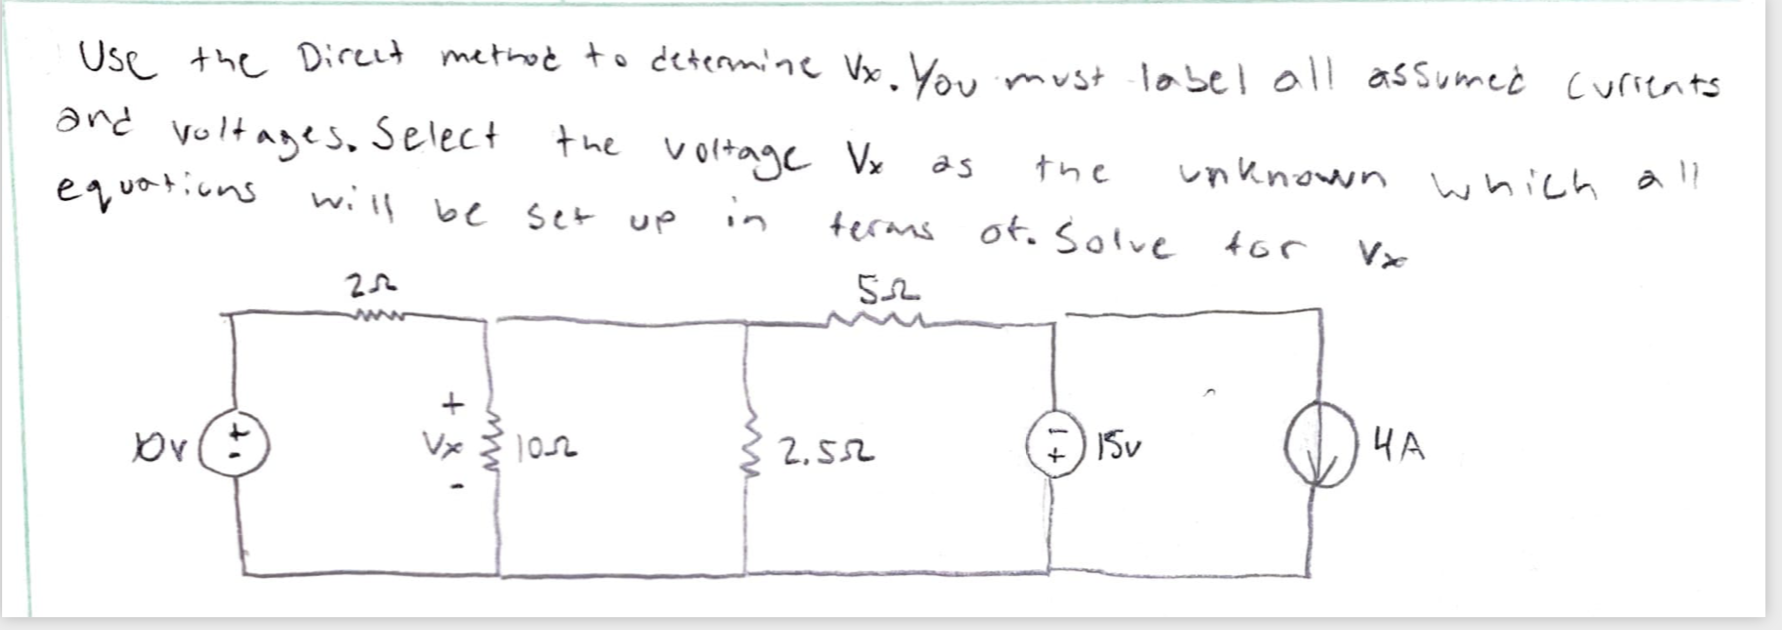 Use the Direct method to determine Vx. You must label all assumed currents
and voltages. Select the voltage Vx as the unknown which all
equations will be set up in terms of. Solve for Vx
2Ω 5Ω
+
10V + - Vx 10Ω 2.5Ω - + 15v 4A
-